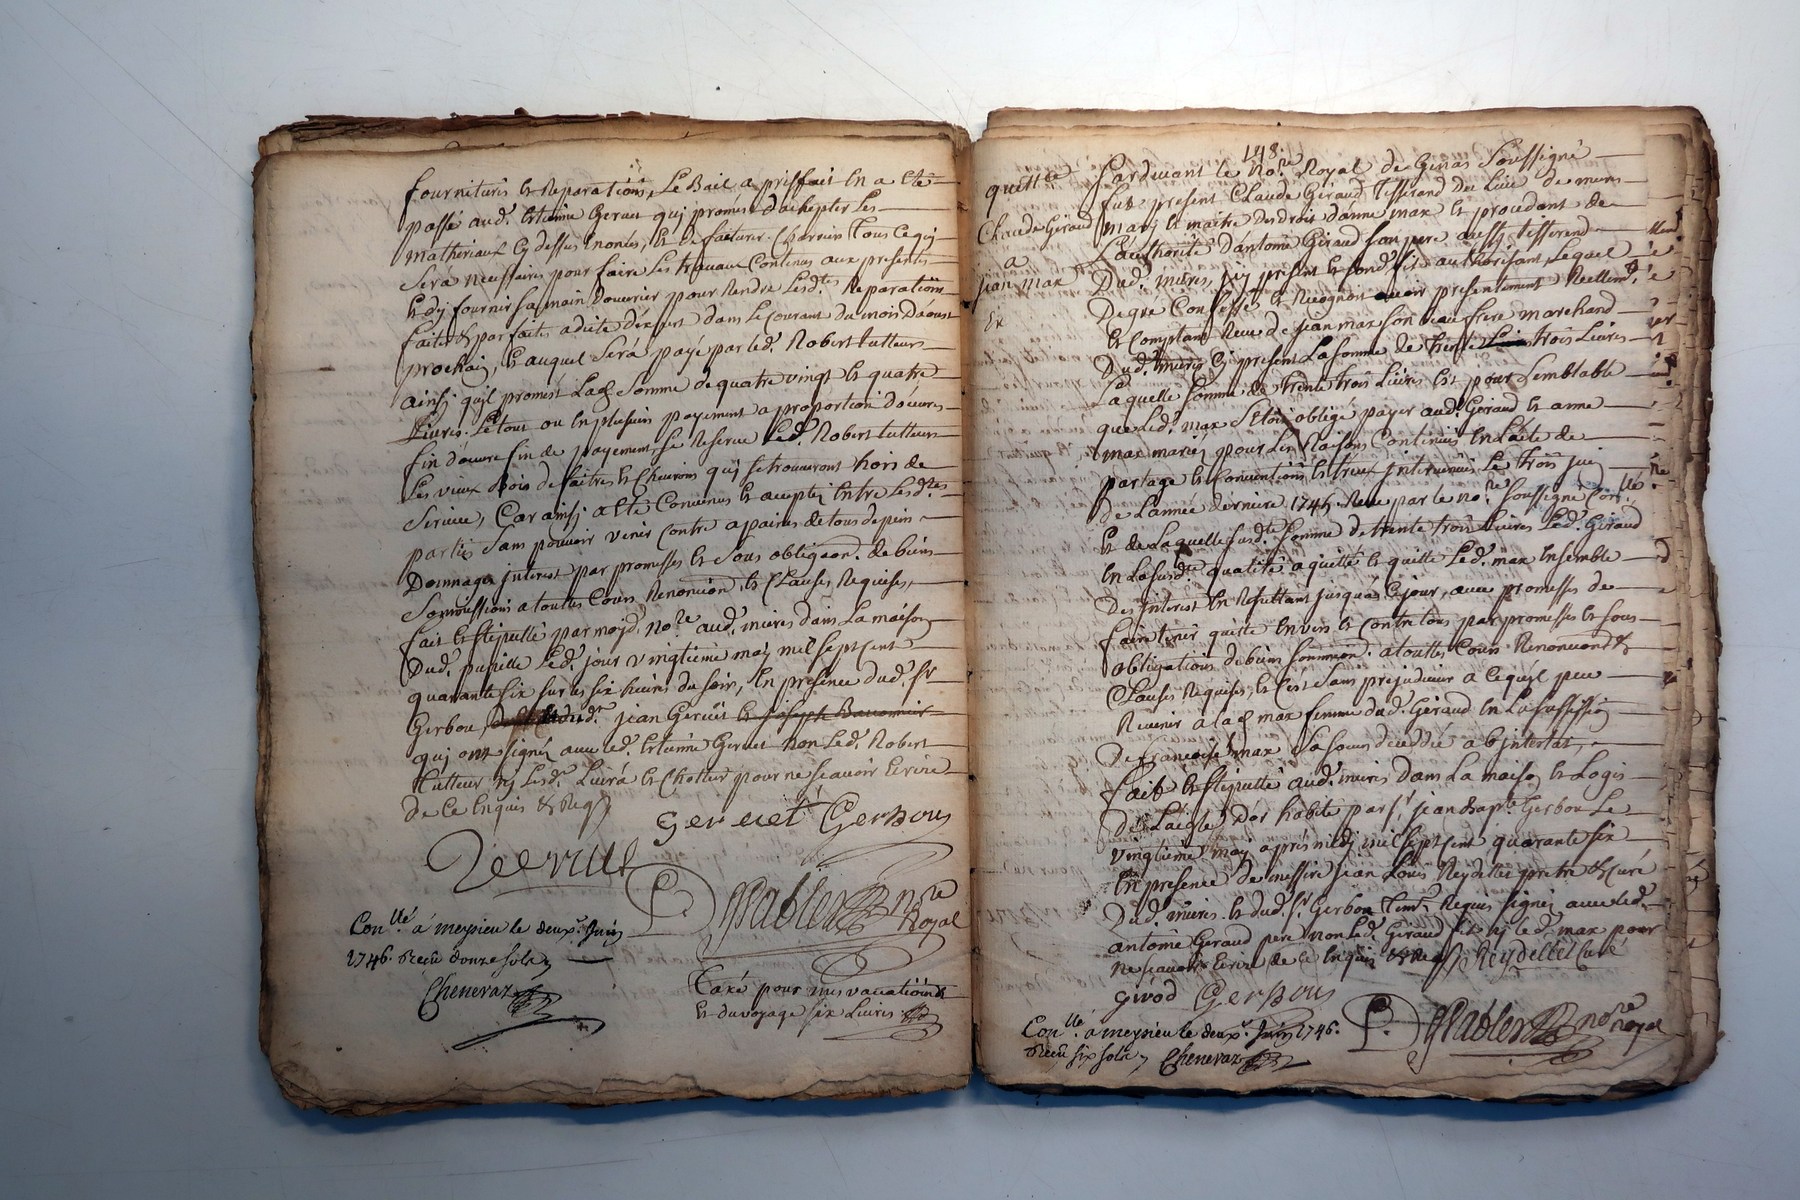 fournitures et Reparations, Le Bail a prisfait en a été
passé aud. Estienne Geruet qui promet d'achepter Les
matheriaux Cy dessus enoncés, et de faiturer. Charrier Tous Ce qui
Sera necessaires pour faire Les travaux Contenus aux presentes
Et dy fournir sa main d'ouurier pour Rendre Lesd.tes Reparations
faites et parfaites a dite d'expert dans Le Courant du mois D'aoust
prochain, et auquel Sera payé par led. Robert tutteur
ainsi quil promet Lad. Somme de quatre vingt et quatre
Liures. Le tout ou en plusieurs payements a proportion d'oeuvres
fin d'oeuvre fin de payement, Se Reserve Led. Robert tutteur
Les vieux Bois de faitres et Cheurons qui se trouueront hors de
Seruice, Car ainsi a été Conuenus et accepté Entre Lesd.tes
parties Sans pouvoir venir Contre a paines de tous depens
Dommages interest par promesses et Sous obligaon. de biens
Soumissions a touttes Cours Renonciaon. et Clauses Requises,
fait et stipullé par moyd. no.re aud. mures dans La maison
Dud. pupille Led. jour vingtieme may mil sept cent
quarante six sur les six heures du soir, En présence dud. Sr.
Gerbou, jean Geruet et joseph
qui ont signés auec led. Estienne Geruet non Led. Robert
Tutteur ny Lesd. Liura et Chottur pour ne scauoir Ecrire
De Ce Enquis & Req
Geruet Gerbou
Geruet
P. no.re Royal
Con.llé á meysieu le deux.e Juin
1746. Recu douze sols
Chenevaz
Taxé pour mes vacations
et du voyage six Liures.
148.
quittce
Claude Giraud
a
jean max
Pardevant le No.re Royal de Genas Soussigné
fut present Claude Giraud Tisserand du Lieu de mures
mary et maitre des droit d'anne max et procedant de
L'authorité d'antoine Giraud son pere aussy tisserend
Dud. mures, Cy présent et sond. fils authorisant, Lequel
De gré Confesse et Recognoit avoir présentement Reellem.t
Et Comptant Receu de jean max son beau frere marchand
Dud. mures Cy présent La somme de trente trois Liures
Laquelle somme de trente trois Liures est pour Semblable
que led. max S'etoit obligé payer aud. Giraud et anne
max mariés pour Les Raisons Contenues En Lacte de
partage et Conuentions Entreux interuenues Le trois juin
de L'année derniere 1745 Receu par le no.re Soussigné Con.llé.
Et de Laquelle susd.te Somme de trente trois Liures Led. Giraud
en La susd.te qualité a quitté et quitte Led. max ensemble
Des interest En Resultant jusqua Cejour, auec promesses de
faire tenir quitte envers et Contre tous par promesses et sous
obligations de biens soumission. a touttes Cours Renonciaon. &
Clauses Requises, et C'est Sans préjudicier a Ce quil peu
Reuenir a lad. max femme dud. Giraud En La succession
De francoise max sa soeur decedée ab intestat,
fait et stipullé aud. mures dans La maison et Logis
De Laigle d'or habité par sr. jean bap.te Gerbou Le
vingtieme may aprés midy mil sept cent quarante six
En presence de messire jean Louis Reydellet pretre & Curé
Dud. mures et dud. sr. Gerbou tem. Requis signés auec led.
antoine Giraud pere non Led. Giraud fils ny led. max pour
ne scauoir Ecrire de Ce Enquis & Req Reydellet Curé
girod Gerbou
P. no.re royal
Con.llé á meysieu le deux.e Juin 1746.
Recu six sols Chenevaz